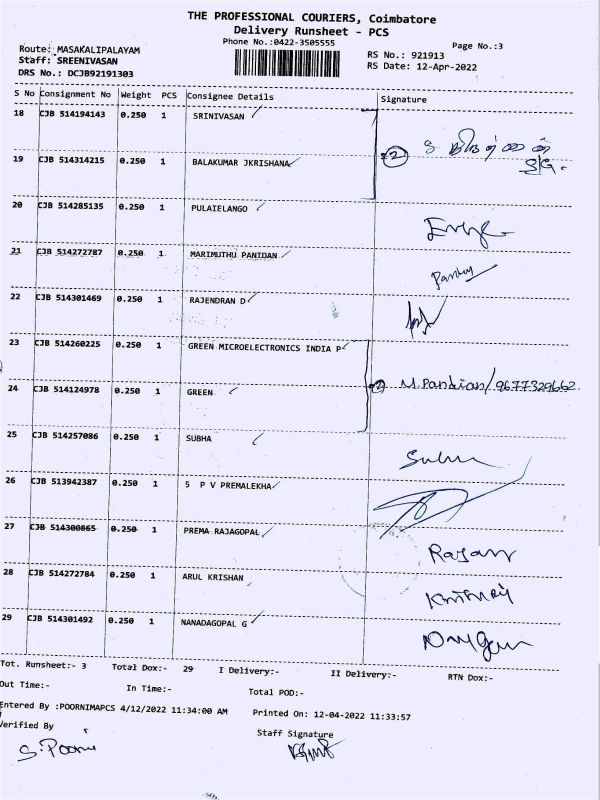 THE PROFESSIONAL COURIERS, Coimbatore
Delivery Runsheet - PCS
Phone No.:0422-3505555
Page No.:3
Route: MASAKALIPALAYAM
Staff: SREENIVASAN
DRS No.: DCJB92191303
RS No.: 921913
RS Date: 12-Apr-2022
S No Consignment No Weight PCS Consignee Details Signature
18 CJB 514194143 0.250 1 SRINIVASAN
19 CJB 514314215 0.250 1 BALAKUMAR JKRISHANA
20 CJB 514285135 0.250 1 PULAIELANGO
21 CJB 514272787 0.250 1 MARIMUTHU PANIDAN
22 CJB 514301469 0.250 1 RAJENDRAN D
23 CJB 514260225 0.250 1 GREEN MICROELECTRONICS INDIA P
24 CJB 514124978 0.250 1 GREEN 2 M.Pandian/9677329662
25 CJB 514257086 0.250 1 SUBHA
26 CJB 513942387 0.250 1 S P V PREMALEKHA
27 CJB 514300865 0.250 1 PREMA RAJAGOPAL
28 CJB 514272784 0.250 1 ARUL KRISHAN
29 CJB 514301492 0.250 1 NANADAGOPAL G
Tot. Runsheet:- 3 Total Dox:- 29 I Delivery:- II Delivery:- RTN Dox:-
Out Time:- In Time:- Total POD:-
Entered By :POORNIMAPCS 4/12/2022 11:34:00 AM Printed On: 12-04-2022 11:33:57
Verified By Staff Signature
S.Poorni